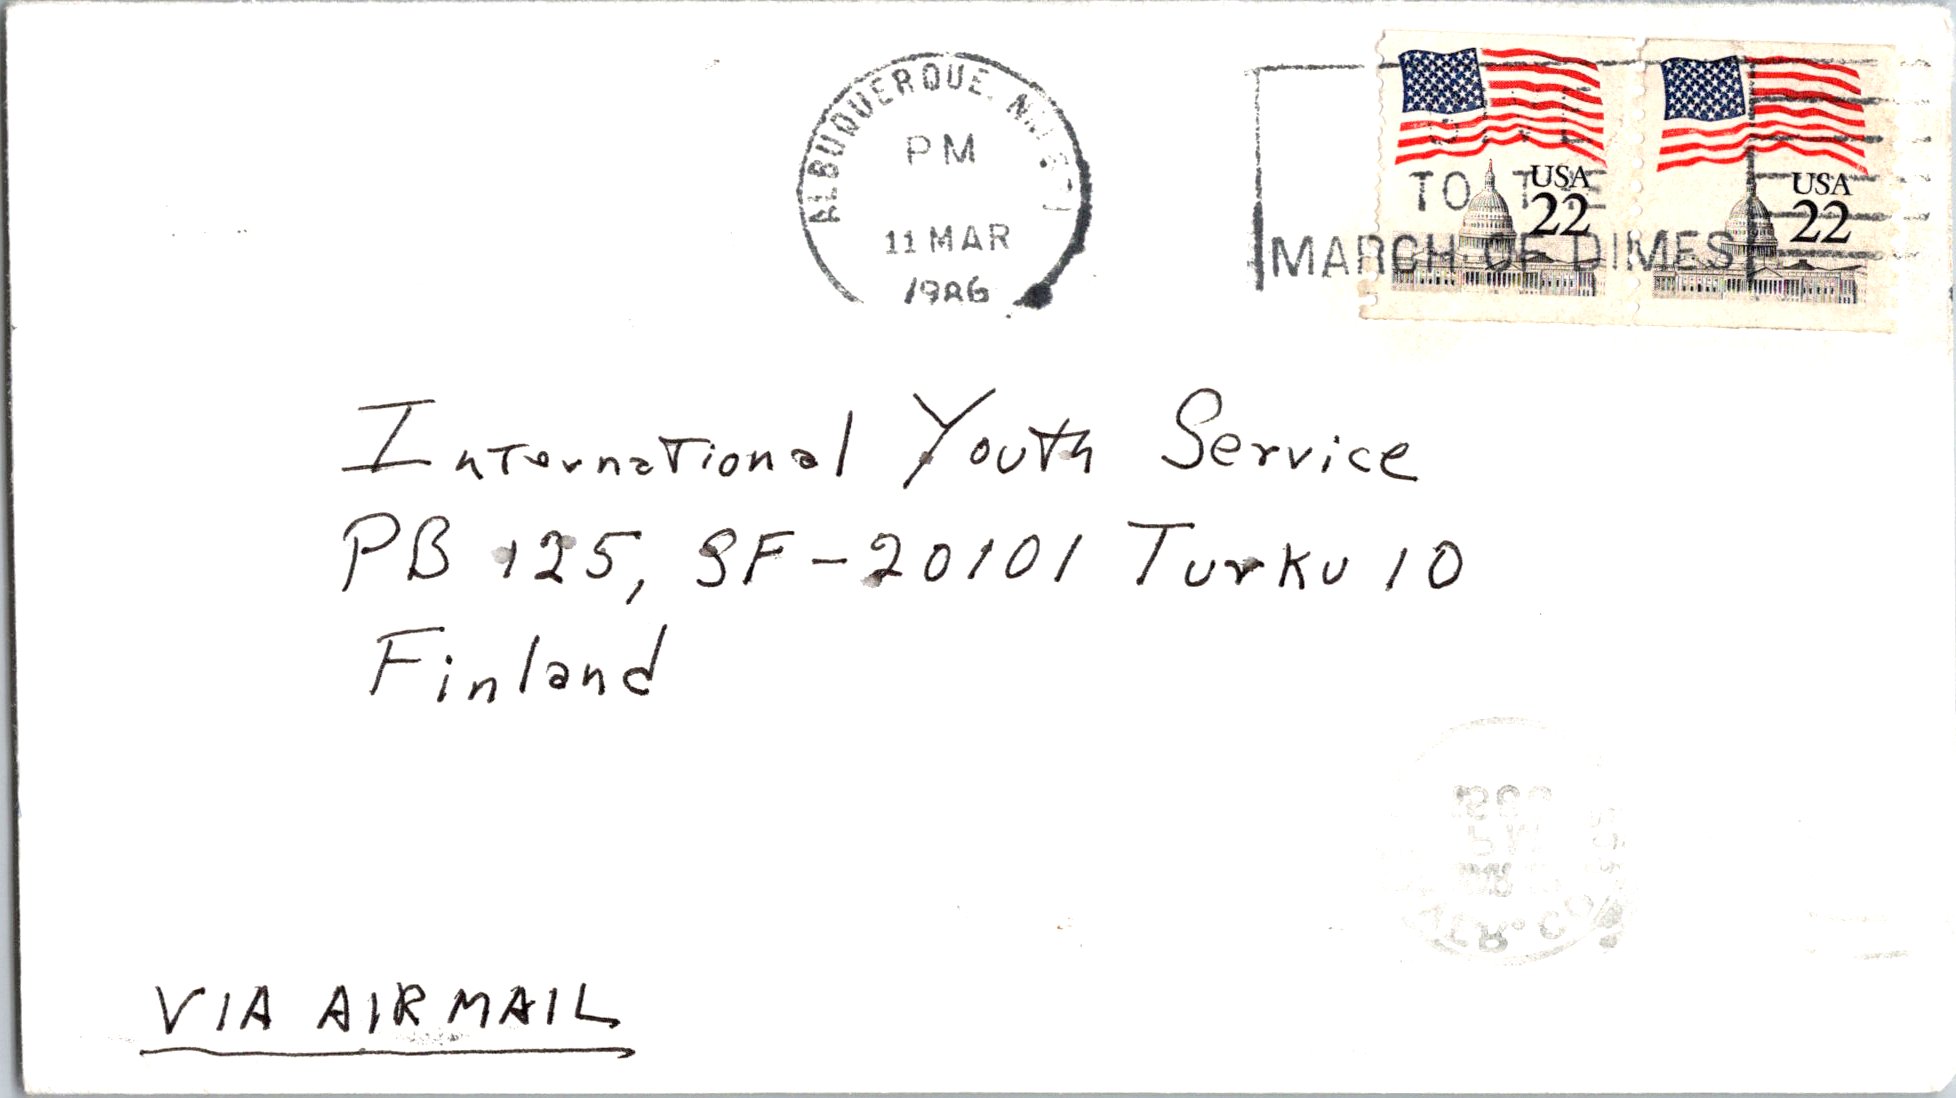 ALBUQUERQUE, NM
PM
11 MAR
1986
TO THE
MARCH OF DIMES
USA
22
USA
22
International Youth Service
PB 125, SF-20101 Turku 10
Finland
VIA AIR MAIL